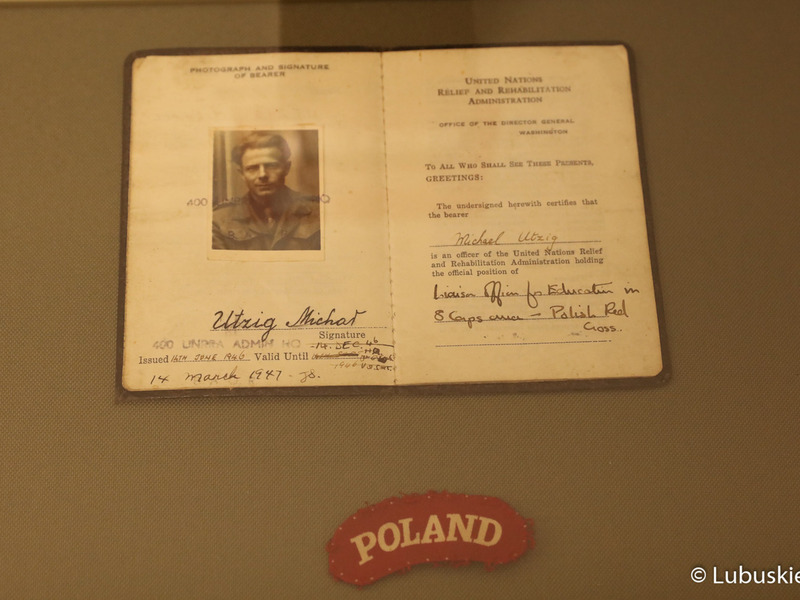 PHOTOGRAPH AND SIGNATURE
OF BEARER
400
HQ
Utzig Michał
Signature
400 UNRRA ADMIN HQ
14. DEC. 46
Issued 14TH JUNE 1946 Valid Until
14 March 1947.
UNITED NATIONS
RELIEF AND REHABILITATION
ADMINISTRATION
OFFICE OF THE DIRECTOR GENERAL
WASHINGTON
TO ALL WHO SHALL SEE THESE PRESENTS,
GREETINGS:
The undersigned herewith certifies that
the bearer
Michael Utzig
is an officer of the United Nations Relief
and Rehabilitation Administration holding
the official position of
Liaison Officer for Education in
8 Corps area – Polish Red
Cross.
POLAND
© Lubuskie